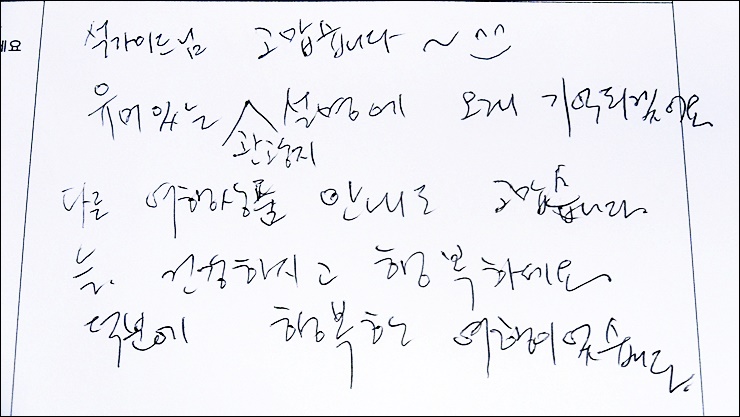 세요
석가이드님 고맙습니다 ~ ^^
유머있는 관광지 설명에 오래 기억되겠어요
다른 여행상품 안내도 고맙습니다
늘. 건강하시고 행복하세요
덕분에 행복한 여행이었습니다.